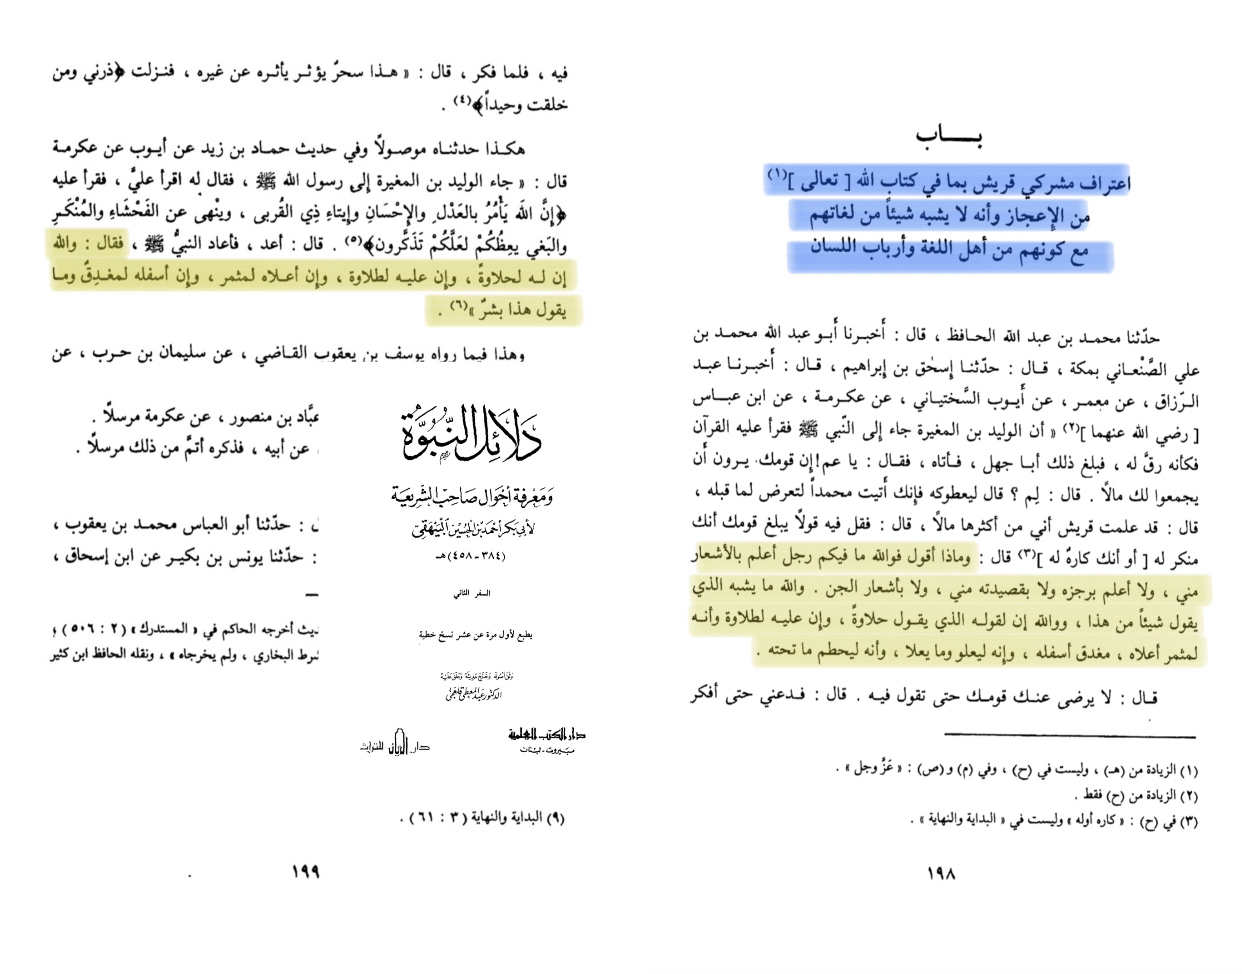 بـــاب
اعتراف مشركي قريش بما في كتاب الله [ تعالى ](١)
من الإعجاز وأنه لا يشبه شيئاً من لغاتهم
مع كونهم من أهل اللغة وأرباب اللسان
حدّثنا محمد بن عبد الله الحافظ ، قال : أخبرنا أبو عبد الله محمد بن
علي الصَّنْعاني بمكة ، قال : حدّثنا إسحٰق بن إبراهيم ، قال : أخبرنا عبد
الرّزاق ، عن معمر ، عن أيوب السَّختياني ، عن عكرمة ، عن ابن عباس
[ رضي الله عنهما ](٢) « أن الوليد بن المغيرة جاء إلى النّبي ﷺ فقرأ عليه القرآن
فكأنه رقَّ له ، فبلغ ذلك أبا جهل ، فأتاه ، فقال : يا عم!إن قومك يرون أن
يجمعوا لك مالاً . قال : لِم ؟ قال ليعطوكه فإنك أتيت محمداً لتعرض لما قبله ،
قال : قد علمت قريش أني من أكثرها مالاً ، قال : فقل فيه قولاً يبلغ قومك أنك
منكر له [ أو أنك كارهٌ له ](٣) قال : وماذا أقول فوالله ما فيكم رجل أعلم بالأشعار
مني ، ولا أعلم برجزه ولا بقصيدته مني ، ولا بأشعار الجن . والله ما يشبه الذي
يقول شيئاً من هذا ، ووالله إن لقوله الذي يقول حلاوةً ، وإن عليه لطلاوة وأنه
لمثمر أعلاه ، مغدق أسفله ، وإنه ليعلو وما يعلا ، وأنه ليحطم ما تحته .
قال : لا يرضى عنك قومك حتى تقول فيه . قال : فدعني حتى أفكر
(١) الزيادة من (هـ) ، وليست في (ح) ، وفي (م) و(ص) : « عَزَّ وجل » .
(٢) الزيادة من (ح) فقط .
(٣) في (ح) : « كاره أوله » وليست في « البداية والنهاية » .
١٩٨
فيه ، فلما فكر ، قال : « هذا سحرٌ يؤثر يأثره عن غيره ، فنزلت ﴿ذرني ومن
خلقت وحيداً﴾(٤) .
هكذا حدثناه موصولاً وفي حديث حماد بن زيد عن أيوب عن عكرمة
قال : « جاء الوليد بن المغيرة إلى رسول الله ﷺ ، فقال له اقرأ عليَّ ، فقرأ عليه
﴿إنَّ الله يَأْمُرُ بالعَدْلِ والإحْسَانِ وإيتاءِ ذِي القُربى ، وينْهى عن الفَحْشَاءِ والمُنْكَرِ
والبَغي يعِظُكُمْ لعَلَّكُمْ تَذَكَّرون﴾(٥) . قال : أعد ، فأعاد النبيُّ ﷺ ، فقال : والله
إن له لحلاوةً ، وإن عليه لطلاوة ، وإن أعلاه لمثمر ، وإن أسفله لمغدِقٌ وما
يقول هذا بشرٌ »(٦) .
وهذا فيما رواه يوسف بن يعقوب القاضي ، عن سليمان بن حرب ، عن
عبَّاد بن منصور ، عن عكرمة مرسلاً .
، عن أبيه ، فذكره أتمَّ من ذلك مرسلاً .
دَلَائِلُ النُّبُوَّةِ
وَمَعْرِفَة أَحْوَال صَاحِبْ الشَّرِيعَة
لأبي بَكر أحمَد بن الحُسَين البَيْهَقي
(٣٨٤ - ٤٥٨)هـ
السفر الثاني
يطبع لأول مرة عن عشر نسخ خطية
وثق أصوله وخرّج حديثه وعلق عليه
الدكتور عبد المعطي قلعجي
دار الكتب العلمية
بيروت - لبنان
دار الريان للتراث
ل : حدّثنا أبو العباس محمد بن يعقوب ،
: حدّثنا يونس بن بكير عن ابن إسحاق ،
ديث أخرجه الحاكم في « المستدرك » (٢ : ٥٠٦) ؛
شرط البخاري ، ولم يخرجاه » ، ونقله الحافظ ابن كثير
(٩) البداية والنهاية (٣ : ٦١) .
١٩٩